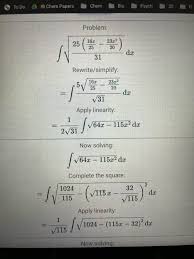 To Do
Chem Papers
Chem
Bio
Psych
Problem:
∫ √(25 (16x/25 − 23x²/20) / 31) dx
Rewrite/simplify:
= ∫ 5√(16x/25 − 23x²/20) / √31 dx
Apply linearity:
= 1/(2√31) ∫ √(64x − 115x²) dx
Now solving:
∫ √(64x − 115x²) dx
Complete the square:
= ∫ √(1024/115 − (√115 x − 32/√115)²) dx
Apply linearity:
= 1/√115 ∫ √(1024 − (115x − 32)²) dx
Now solving: